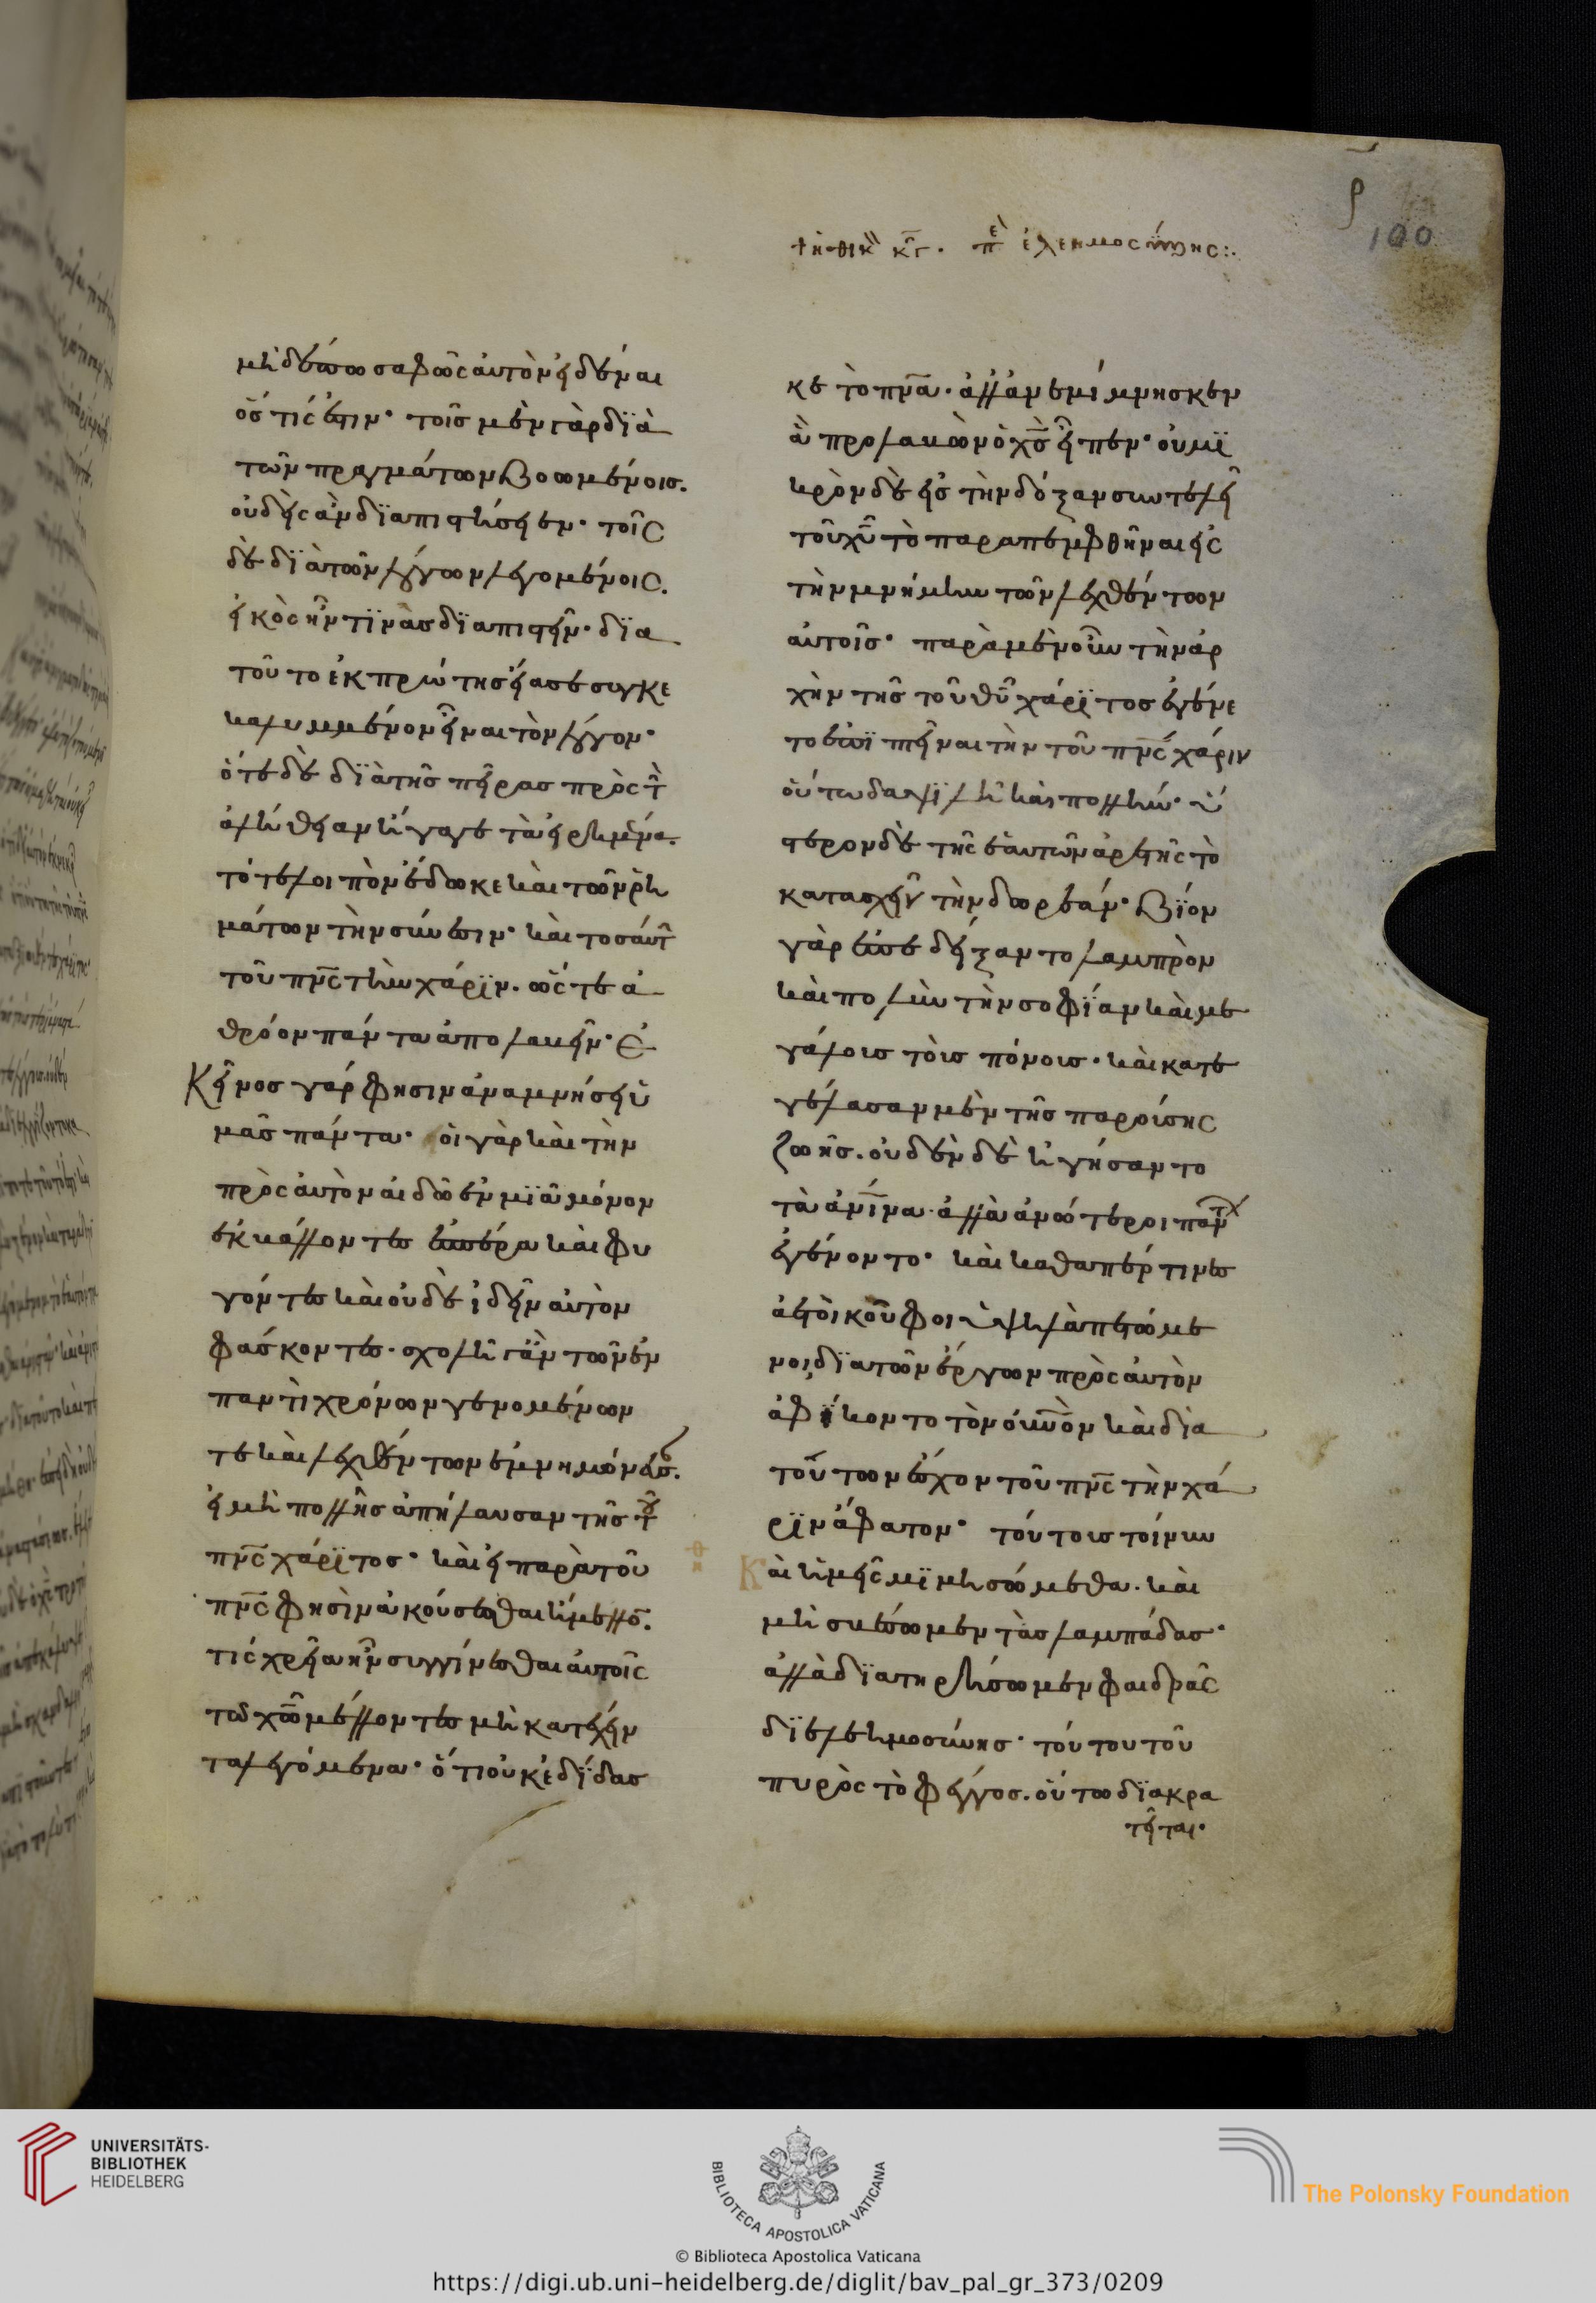 ρ
100
τὸ ἠθικ κγ. πε ἐλεημοσύνης:.
μηδέπω σαφῶς αὐτὸν εἰδέναι
ὅστίς ἐστιν· τοῖς μὲν γὰρ διὰ
τῶν πραγμάτων βοωμένοις.
οὐδεὶς ἂν διαπιστήσειεν· τοῖς
δὲ διὰ τῶν λόγων λεγομένοις.
εἰκὸς ἦν τινὰς διαπιστεῖν· δια
τοῦτο ἐκ πρώτης εἴασε συγκε
καλυμμένον εἶναι τὸν λόγον·
ὅτε δὲ διὰ τῆς πείρας πρὸς τ
ἀλήθειαν ἤγαγε τὰ εἰρημένα.
τότε λοιπὸν ἔδωκε καὶ τῶν ῥη
μάτων τὴν σύνεσιν· καὶ τοσαύτ
τοῦ πνς τὴν χάριν. ὥστε ἀ
θρόον πάντα ἀπολαβεῖν· Ἐ
Κεῖνος γάρ φησιν ἀναμνήσει ὑ
μᾶς πάντα· οἱ γὰρ καὶ τὴν
πρὸς αὐτὸν αἰδῶ ἐν μιᾶ μόνον
ἐκβάλλοντες ἑσπέρα καὶ φυ
γόντες καὶ οὐδὲ ἰδεῖν αὐτὸν
φάσκοντες. σχολῆ γ ἂν τῶν ἐν
παντὶ χρόνω γενομένων
τε καὶ λεχθέντων ἐμνημόνευσ.
εἰ μὴ πολλῆς ἀπήλαυσαν τῆς τοῦ
πνς χάριτος· καὶ εἰ παρὰ τοῦ
πνς φησὶν ἀκούσεσθαι ἤμελλο.
τίς χρεία ἦν συγγίνεσθαι αὐτοῖς
τῶ χω μέλλοντες μὴ κατέχειν
τα λεγόμενα· ὅτι οὐκ ἐδίδασ
κε τὸ πνα· ἀλλ' ἀνεμίμνησκεν
ἃ προλαβὼν ὁ χς εἶπεν· οὐ μι
κρὸν δὲ εἰς τὴν δόξαν συντελεῖ
τοῦ χυ τὸ παραπεμφθῆναι εἰς
τὴν μνήμην τῶν λεχθέντων
αὐτοῖς· παρὰ μὲν οὖν τὴν ἀρ
χὴν τῆς τοῦ θυ χάριτος ἐγένε
το ἐπιπτῆναι τὴν τοῦ πνς χάριν
οὕτω δαψιλῆ καὶ πολλήν· ὕ
στερον δὲ τῆς ἑαυτῶν ἀρετῆς τὸ
κατασχεῖν τὴν δωρεάν· βίον
γὰρ ἐπεδείξαντο λαμπρὸν
καὶ πολὺν τὴν σοφίαν καὶ με
γάλοις τοῖς πόνοις· καὶ κατε
γέλασαν μὲν τῆς παρούσης
ζωῆς. οὐδὲν δὲ ἡγήσαντο
τὰ ἀνινα· ἀλλὰ ἀνώτεροι πάντ
ἐγένοντο· καὶ καθάπερ τινες
ἀετοὶ κοῦφοι ὑψηλὰ πετώμε
νοι διὰ τῶν ἔργων πρὸς αὐτὸν
ἀφίκοντο τὸν οὐνὸν καὶ διὰ
τούτων ἔσχον τοῦ πνς τὴν χά
ριν ἄφατον· τούτοις τοίνυν
Καὶ ἡμεῖς μιμησώμεθα. καὶ
μὴ σβέσωμεν τὰς λαμπάδας·
ἀλλὰ διατηρήσωμεν φαιδρὰς
δι ἐλεημοσύνης· τούτου τοῦ
πυρὸς τὸ φέγγος. οὕτω διακρα
τεῖται.
UNIVERSITÄTS-
BIBLIOTHEK
HEIDELBERG
BIBLIOTECA APOSTOLICA VATICANA
The Polonsky Foundation
© Biblioteca Apostolica Vaticana
https://digi.ub.uni-heidelberg.de/diglit/bav_pal_gr_373/0209